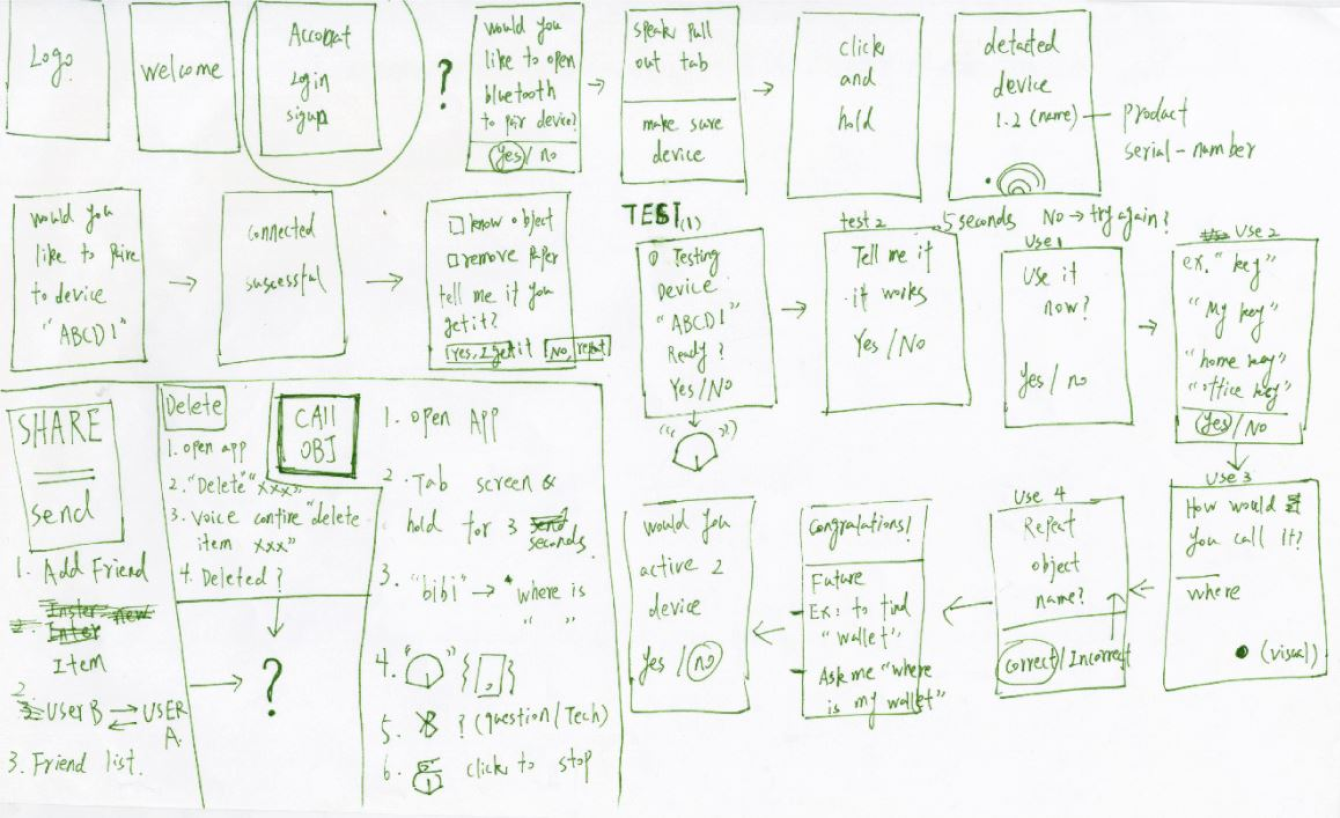 Logo
Welcome
Account
Login
signup
?
would you
like to open
bluetooth
to pair device?
Yes / no
speak pull
out tab
make sure
device
click
and
hold
detacted
device
1.2 (name)
product
serial-number
would you
like to Paire
to device
"ABCD1"
connected
suscessful
know object
remove paper
tell me if you
get it?
Yes, I get it
No, repeat
TEST (1)
Testing
Device
"ABCD1"
Ready?
Yes/No
test 2
Tell me if
it works
Yes/No
5 seconds No → try again?
Use 1
Use it
now?
Yes / no
Use 2
ex. "key"
"My key"
"home key"
"office key"
Yes / No
Use 3
How would
you call It?
where
(visual)
Use 4
Repect
object
name?
correct / Incorrect
Congratulations!
Future
Ex: to find
"wallet"
Ask me "where
is my wallet"
would you
active 2
device
Yes / no
SHARE
send
1. Add Friend
Enter
Item
2. User B USER
A.
3. Friend list.
Delete
1. open app
2. "Delete" "xxx"
3. Voice confire "delete
item xxx"
4. Deleted?
?
CAll
OBJ
1. open App
2. Tab screen &
hold for 3
seconds.
3. "bibi" → "where is
" "
4.
5. ? (question/Tech)
6. click to stop